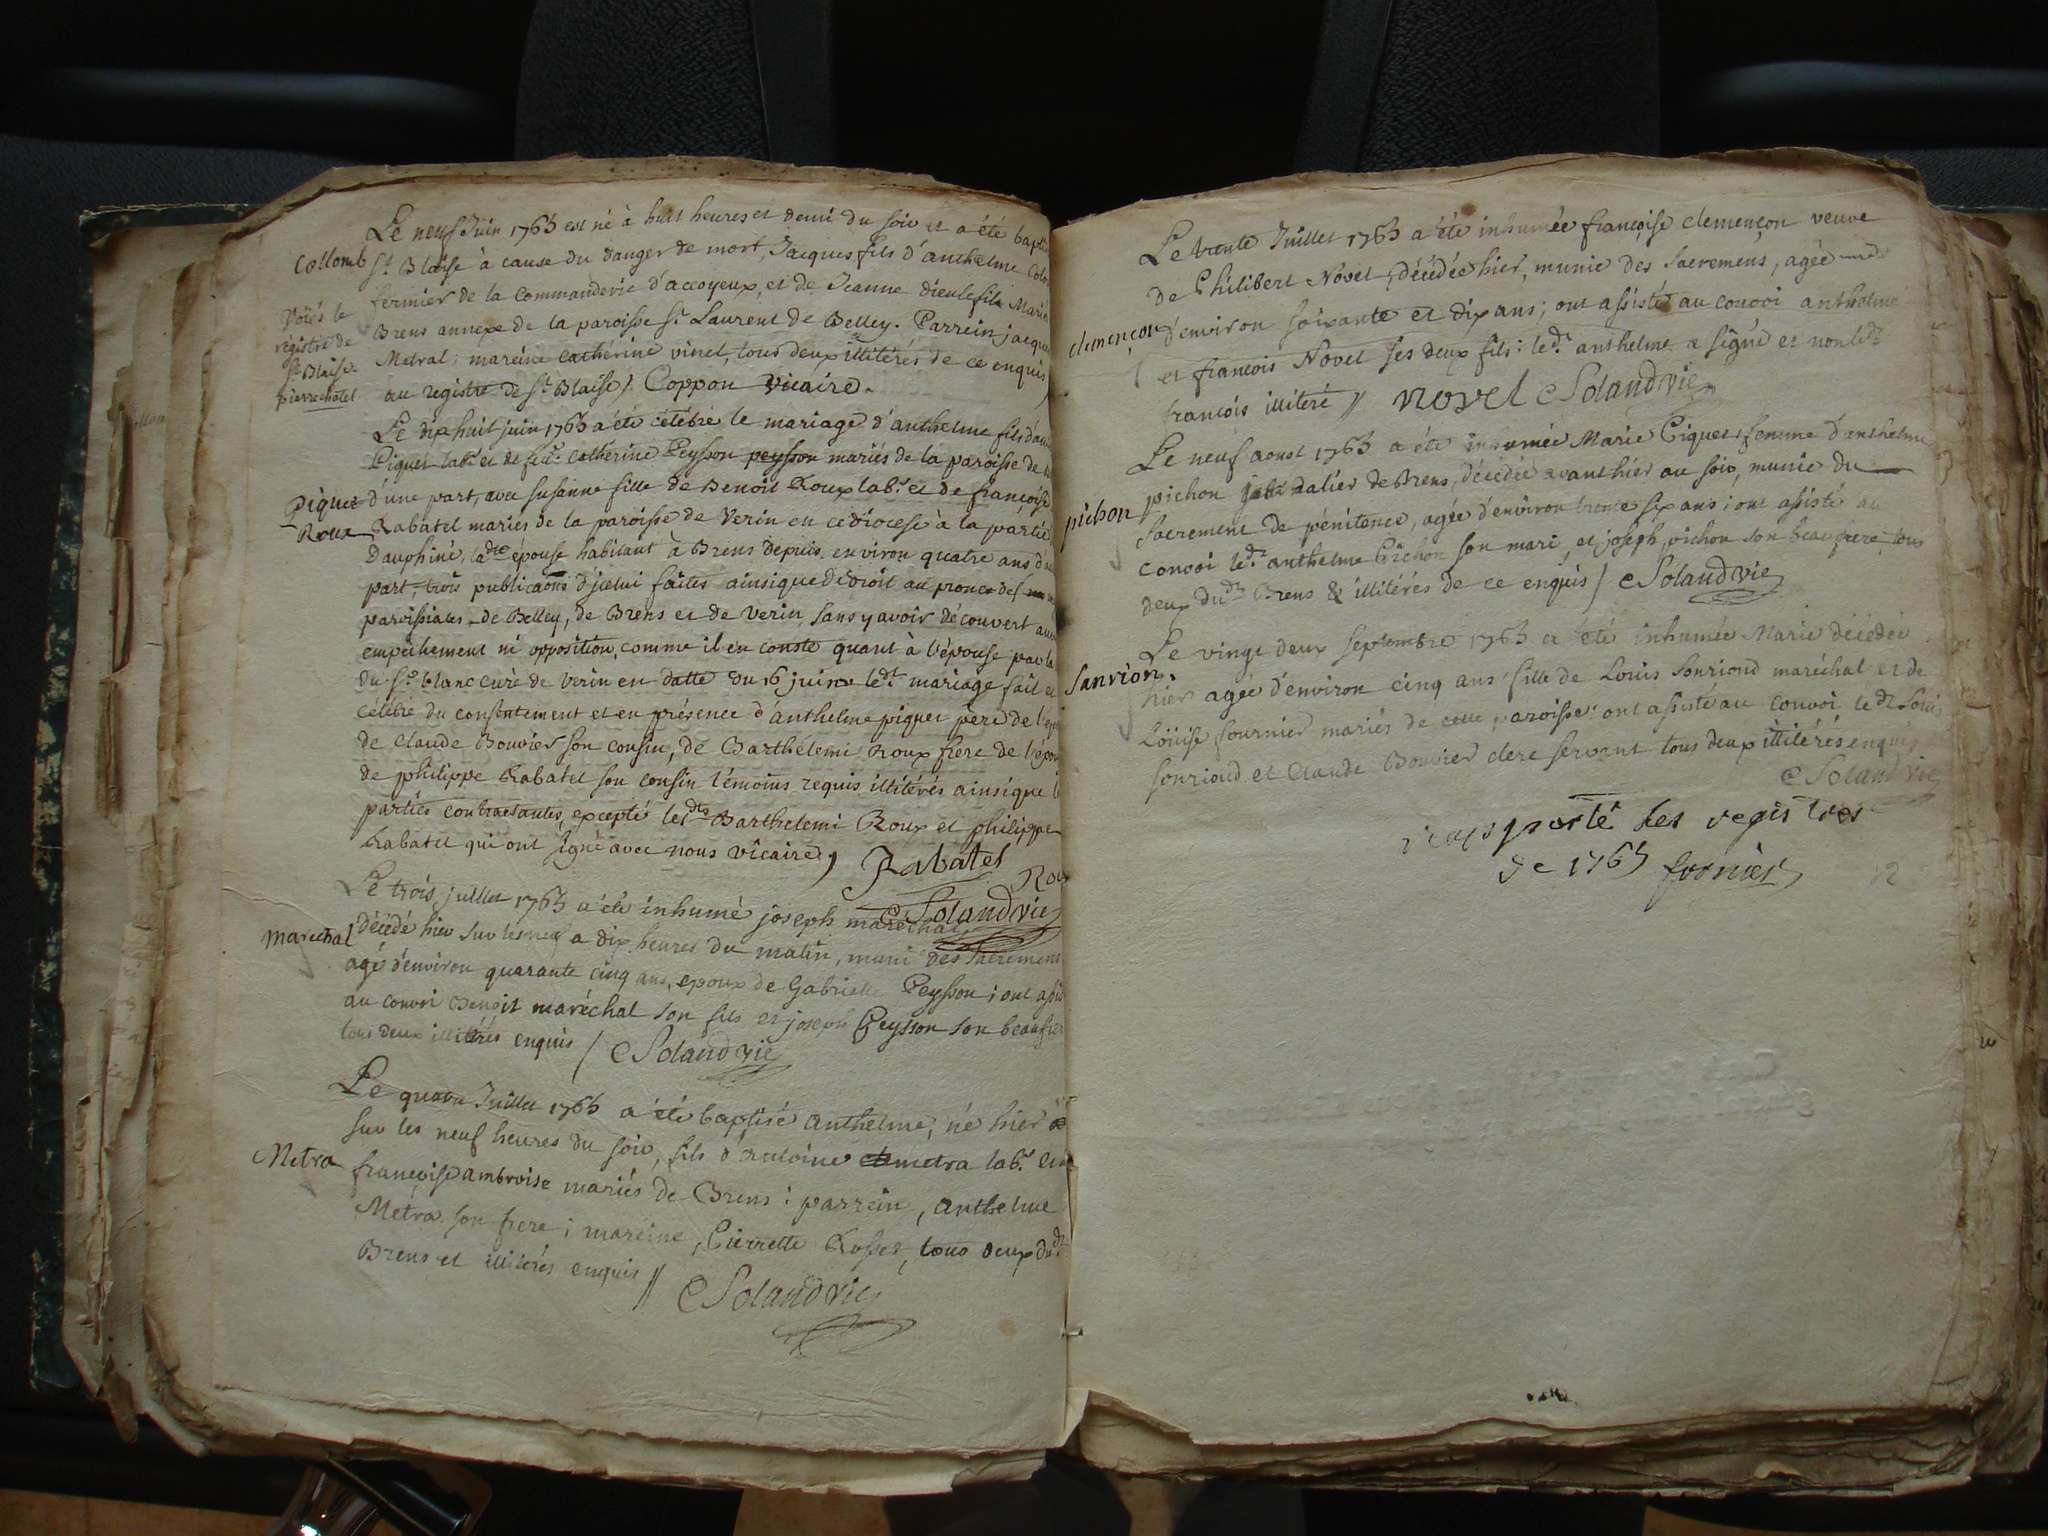 Le neuf Juin 1763 est né à huit heures et demi du soir et a été bapti
Collomb
St. Blaise à cause du danger de mort, Jacques fils d'anthelme Colo
fermier de la Commanderie d'accoyeux, et de Jeanne dieulefils Mariés
Voiés le
registre de
St Blaise
pierrechâtel
Brens annexe de la paroisse St. Laurent de Belley. Parrein jacques
Metral; mareine Cathérine vinet, tous deux illitérés de ce enquis
au registre de St Blaise / Coppon vicaire.
Le dix huit juin 1763 a été célébré le mariage d'anthelme fils d'an
Piquet lab.r et de fue. Cathérine Peysson peysson mariés de la paroisse de
Piquet
Roux
d'une part, avec Susanne fille de Benoit Roux lab.r et de françoise
Rabatel mariés de la paroisse de Verin en ce diocese à la partie
Dauphiné, ladte épouse habitant à Brens depuis environ quatre ans d'
part, trois publicaons d'icelui faites ainsi que de droit au prone des
paroissiales de Belley, de Brens et de Verin, sans y avoir découvert au
empêchement ni opposition, comme il en conste quant à l'épouse par la
du Sr. blanc curé de Verin en datte du 16 juin ledt. mariage fait et
célébré du consentement et en présence d'anthelme piquet père de l'ep
de Claude Bouvier son cousin, de Barthélemi Roux frère de l'épou
de philippe Rabatel son cousin témoins requis illitérés ainsi que l
parties contractantes, excepté lesdts Barthelemi Roux et philippe
Rabatel qui ont signé avec nous vicaire, Rabatel Rou
Solandvic
Le trois juillet 1763 a été inhumé joseph maréchal
Marechal
décédé hier sur les neuf a dix heures du matin, muni des Sacremens
agé d'environ quarante cinq ans, epoux de Gabrielle Peysson; ont assis
au convoi Benoit maréchal son fils et joseph Peysson son beaufre
tous deux illitérés enquis / Solandvic
Le quatre Juillet 1763 a été baptisé anthelme, né hier
sur les neuf heures du soir, fils d'antoine metra lab.r et
Metra
françoise ambroise mariés de Brens: parrein, anthelme
Métra son frere; mareine, Pierrette Rosset, tous deux dudt
Brens et illitérés enquis // Solandvic
Le trente Juillet 1763 a été inhumée françoise clemençon veuve
de Philibert Novel, décédée hier, munie des Sacremens, agée
clemençon
d'environ soixante et dix ans; ont assisté au convoi anthelme
et françois Novel ses deux fils: ledt. anthelme a signé et non ledt
françois illitéré // novel Solandvic
Le neuf aoust 1763 a été inhumée Marie Piquet femme d'anthelme
pichon
pichon dalier de Brens, décédée avanthier au soir, munie du
Sacrement de pénitence, agée d'environ trente six ans; ont assisté au
convoi ledt. anthelme Pichon son mari, et joseph pichon son beaufrere, tous
deux dudt Brens & illitérés de ce enquis / Solandvic
Le vingt deux septembre 1763 a été inhumée Marie décédée
Sanrion
hier agée d'environ cinq ans fille de Louis Sonrioud maréchal et de
Loüise fournier mariés de cette paroisse: ont assisté au convoi ledt Louis
sonrioud et Claude Bouvier clerc servant tous deux illitérés enquis
Solandvic
raporté les registres
de 1763 fornier